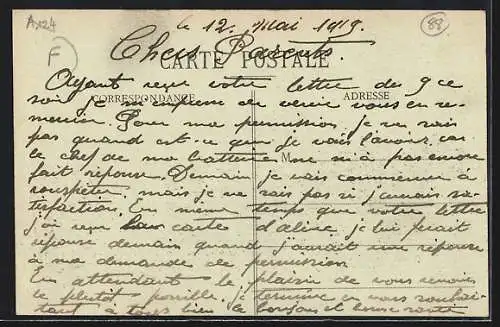 A 124
88
F
le 12 Mai 1919.
Chers Parents.
CARTE POSTALE
CORRESPONDANCE
ADRESSE
M
Ayant reçu votre lettre du 9 ce
soir je m'empresse de venir vous en re-
mercier. Pour ma permission je ne sais
pas quand est-ce que je vais l'avoir car
le chef de ma batterie ne m'a pas encore
fait réponse. Demain je vais commencer à
rouspéter, mais je ne sais pas si j'aurais sa-
tisfaction. En même temps que votre lettre
j'ai reçu carte d'Aline, je lui ferait
réponse demain quand j'aurait une réponse
à ma demande de permission
En attendant le plaisir de vous revoir
le plutôt possible je termine en vous souhai-
tant à tous bien le bonjour et bonne santé